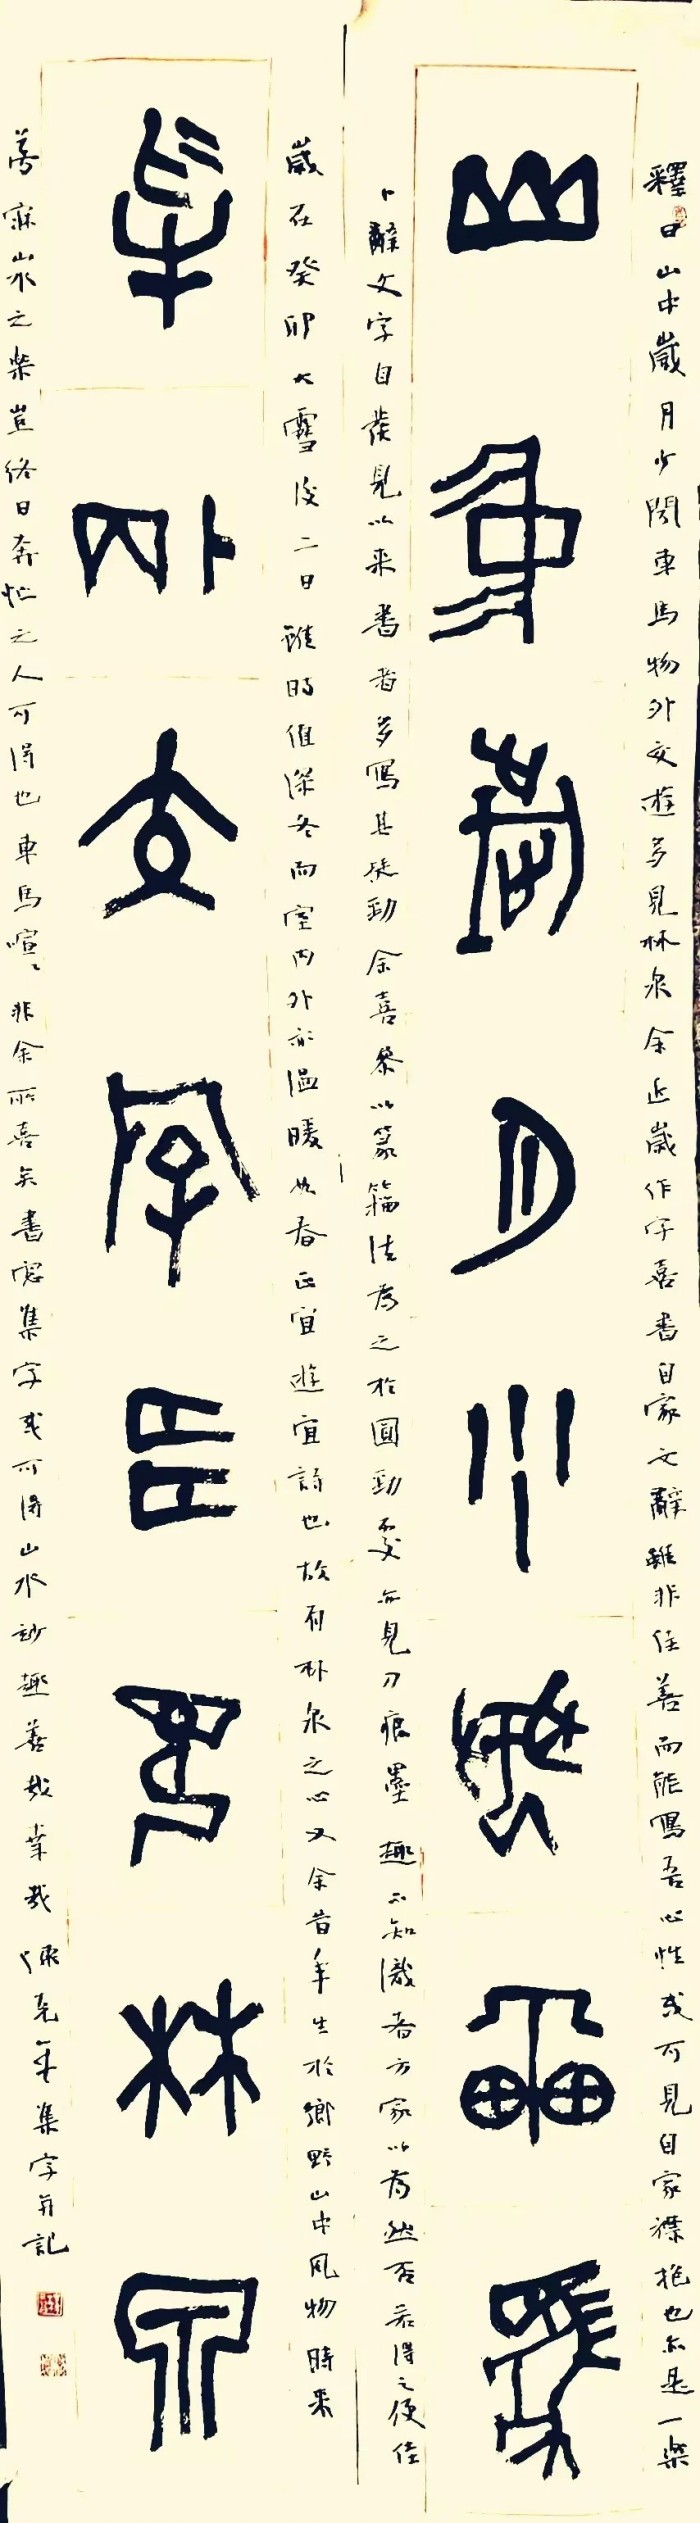 山中歲月少聞車馬
物外交游多見林泉
釋曰山中歲月少聞車馬物外交遊多見林泉余近歲作字喜書自家文辭雖非佳善而能寫吾心性或可見自家襟抱也亦是一樂
卜辭文字自發見以來書者多寫其勁余喜參以篆籀法為之於圓勁處亦見刀痕墨趣不知識者方家以為然否若得之便佳
歲在癸卯大雪後二日雖時值深冬而室內外亦溫暖如春正宜遊宜詩也故有林泉之心又余昔年生於鄉野山中風物時來
夢寐山水之樂豈終日奔忙之人可得也車馬喧喧非余所喜矣書窓集字或可得山水妙趣善哉幸哉 集字并記